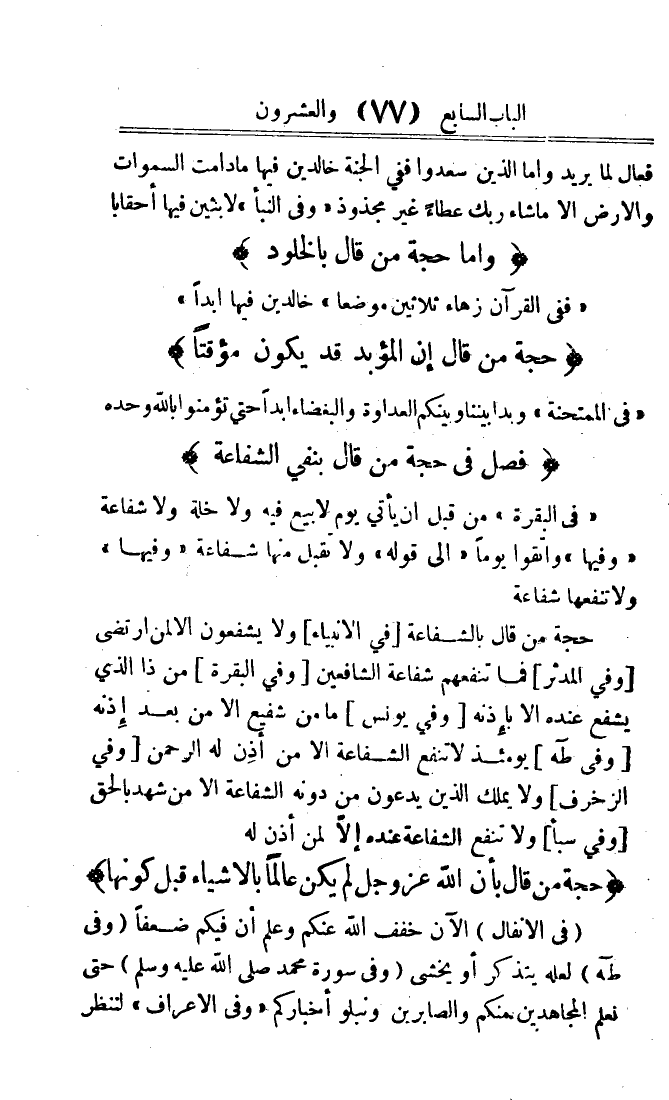 الباب السابع (٧٧) والعشرون
فعال لما يريد واما الذين سعدوا ففي الجنة خالدين فيها مادامت السموات
والارض الا ماشاء ربك عطاءً غير مجذوذ « وفى النبأ » لابثين فيها أحقابا
﴿ واما حجة من قال بالخلود ﴾
« ففى القرآن زهاء ثلاثين موضعا » خالدين فيها ابداً »
﴿ حجة من قال إن المؤبد قد يكون مؤقتاً ﴾
« فى الممتحنة » وبدا بيننا وبينكم العداوة والبغضاء ابداً حتي تؤمنوا بالله وحده
﴿ فصل فى حجة من قال بنفي الشفاعة ﴾
« فى البقرة » من قبل ان يأتي يوم لا بيع فيه ولا خلة ولا شفاعة
« وفيها » واتقوا يوماً « الى قوله » ولا تقبل منها شفاعة « وفيها »
ولا تنفعها شفاعة
حجة من قال بالشفاعة [في الانبياء] ولا يشفعون الا لمن ارتضى
[وفي المدثر] فما تنفعهم شفاعة الشافعين [ وفي البقرة ] من ذا الذي
يشفع عنده الا بإذنه [ وفي يونس ] ما من شفيع الا من بعد إذنه
[ وفى طه ] يومئذ لا تنفع الشفاعة الا من أذن له الرحمن [ وفي
الزخرف] ولا يملك الذين يدعون من دونه الشفاعة الا من شهد بالحق
[وفي سبأ] ولا تنفع الشفاعة عنده إلاّ لمن أذن له
﴿حجة من قال بأن الله عز وجل لم يكن عالماً بالاشياء قبل كونها﴾
(فى الانفال) الآن خفف الله عنكم وعلم أن فيكم ضعفاً (وفى
طه) لعله يتذكر أو يخشى (وفى سورة محمد صلى الله عليه وسلم) حتى
نعلم المجاهدين منكم والصابرين ونبلو أخباركم « وفى الاعراف » لننظر